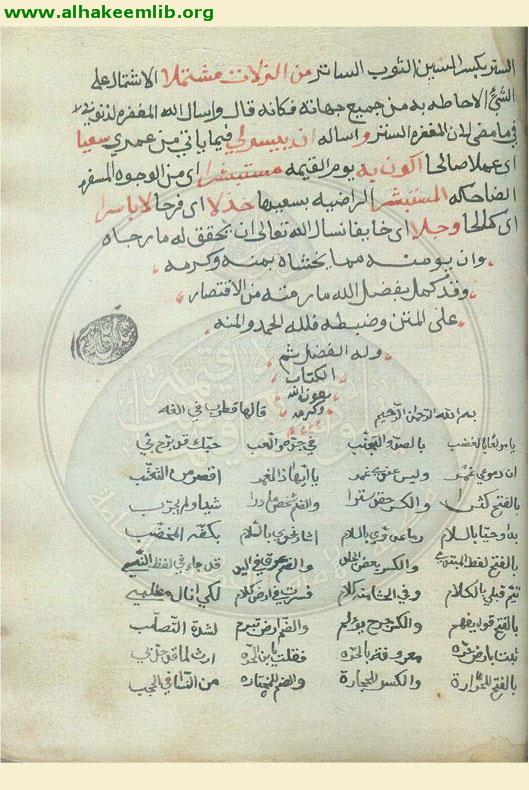 www.alhakeemlib.org
الستر بكسر السين الثوب الساتر من الزلات مشتملا الاشتمال على
الشيء الاحاطه به من جميع جهاته فكانه قال واسال الله المغفره لذنوبي
في ما مضى لان المغفره الستر واساله ان ييسر لي فيما ياتي من عمري سعيا
اى عملا صالحا اكون به يوم القيمه مستبشرا اى من الوجوه المسفره
الضاحكه المستبشره الراضيه بسعيها جذلا اى فرحا لا باسرا
اى كالحا وجلا اى خايفا نسال الله تعالى ان يحقق له ما رجاه
وان يومنه مما يخشاه بمنه وكرمه
وقد كمل بفضل الله ما رمته من الاقتصار
على المتن وضبطه فلله الحمد والمنه
وله الفضل تم
الكتاب
بعون الله
وكرمه
بسم الله الرحمن الرحيم قالها قطرب في اللغه
يا مولعا بالغضب بالصد والتجنب في جده واللعب حبك قد برح بي
ان دموعي غمر وليس عندي غمر يا ايها ذا الغمر اقصر من التعتب
بالفتح والكسر حقد سترا والضم شخص ما درا شيا ولم يجرب
بدا وحيا بالسلام رمى عذولي بالسلام اشار نحوي بالسلام بكفه المخضب
بالفتح لفظ المبتدي والكسر بعض الجلمد والضم عرق في اليد قد جاء في لفظ النبي
تيم قلبي بالكلام وفي الحشا منه كلام فسرت في ارض كلام لكي انال مطلبي
بالفتح قول يفهم والكسر جرح يولم والضم ارض تبرم لشدة التصلب
ثبت بارض حره معروفة بالحره فقلت يا ابن الحره ارث لما قد حل بي
بالفتح للحرارة والكسر للحجارة والضم للمختاره من النسا في الحجب